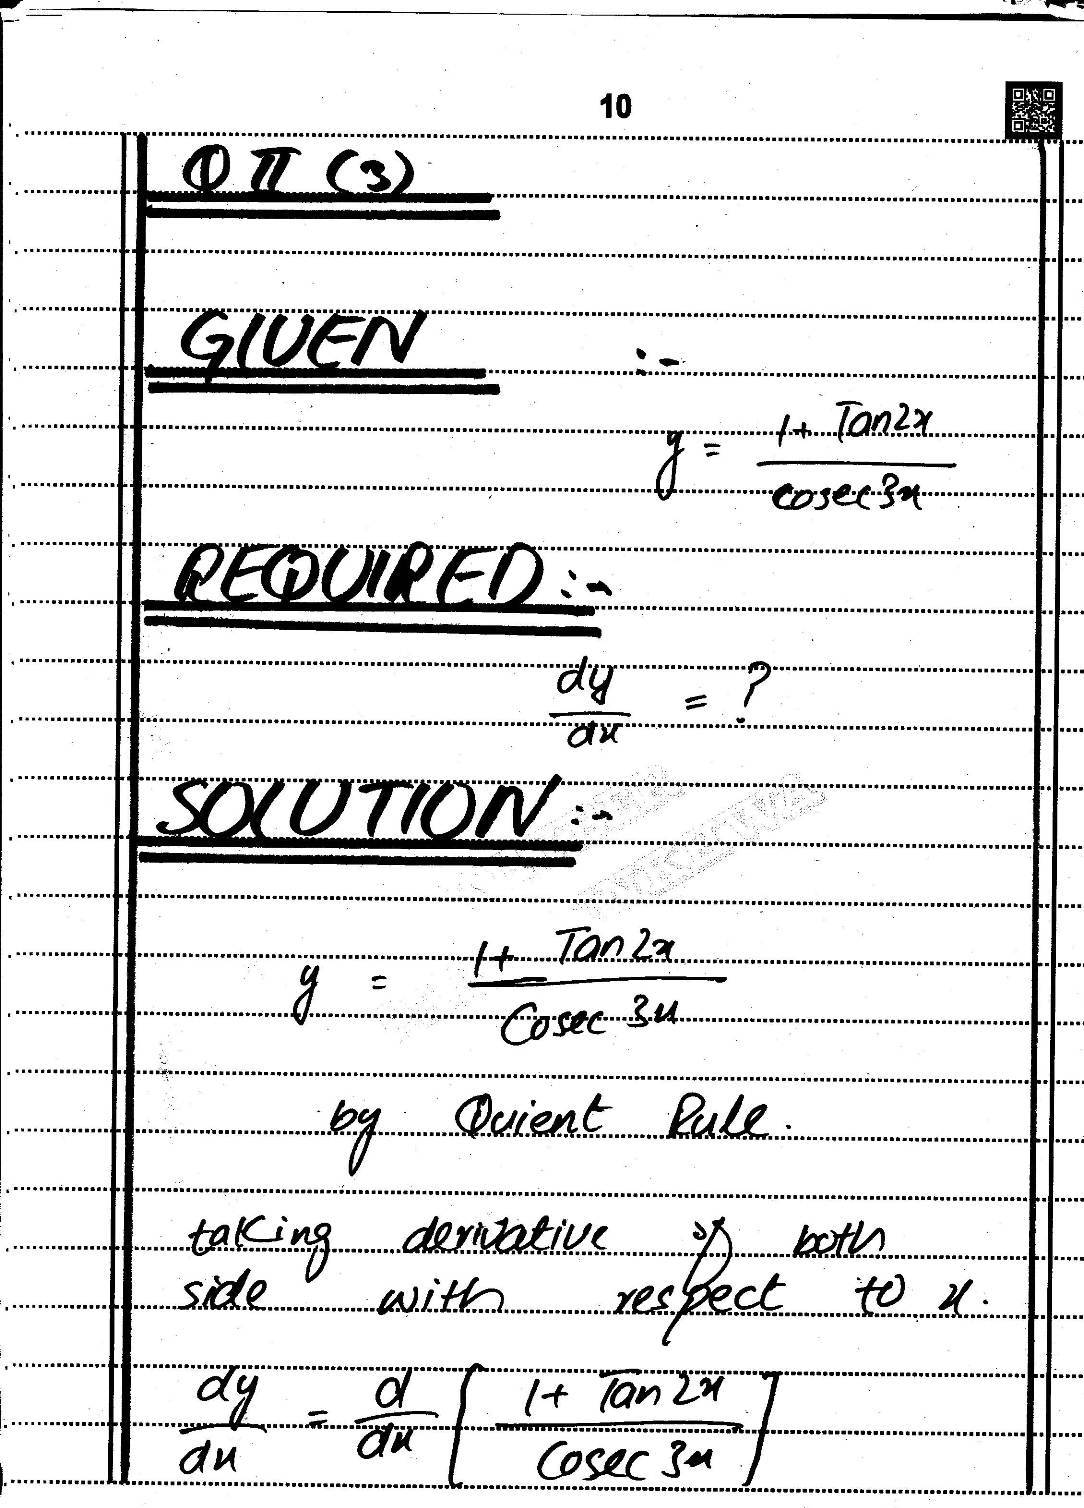 10
Q II (3)
GIVEN :-
y = 1+ Tan2x / cosec3x
REQUIRED :-
dy/dx = ?
SOLUTION :-
y = 1+ Tan2x / Cosec 3x
by Quient Rule.
taking derivative of both
side with respect to x.
dy/dx = d/dx [ 1+ Tan2x / Cosec 3x ]